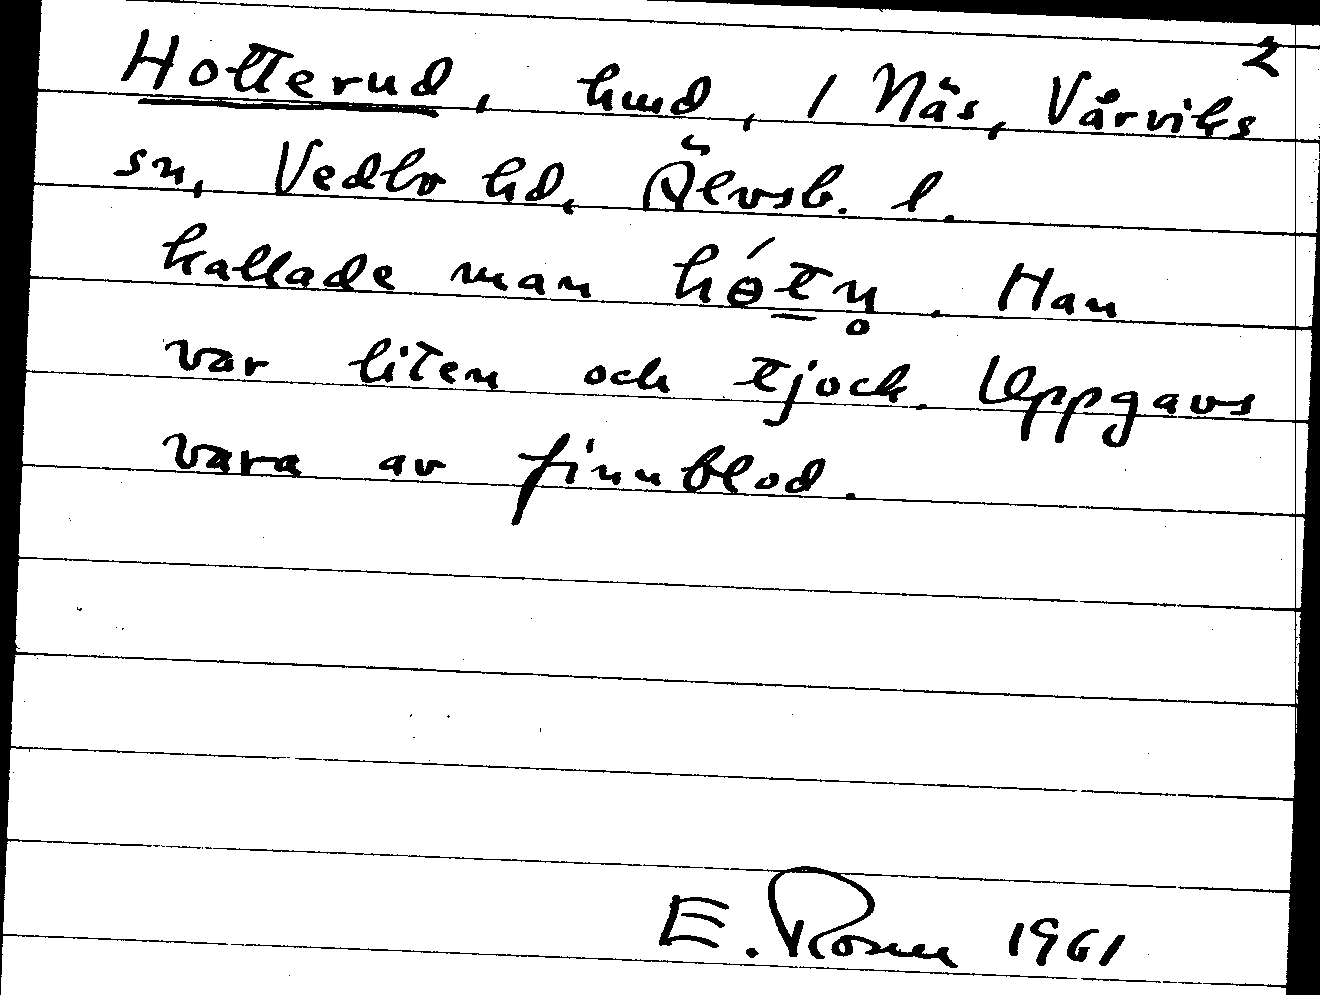 2
Hotterud, hmd, 1 Näs, Vårviks
sn, Vedbo hd, Älvsb. l.
kallade man hө́t̠n̥. Han
var liten och tjock. Uppgavs
vara av finnblod.
E. Rosén 1961